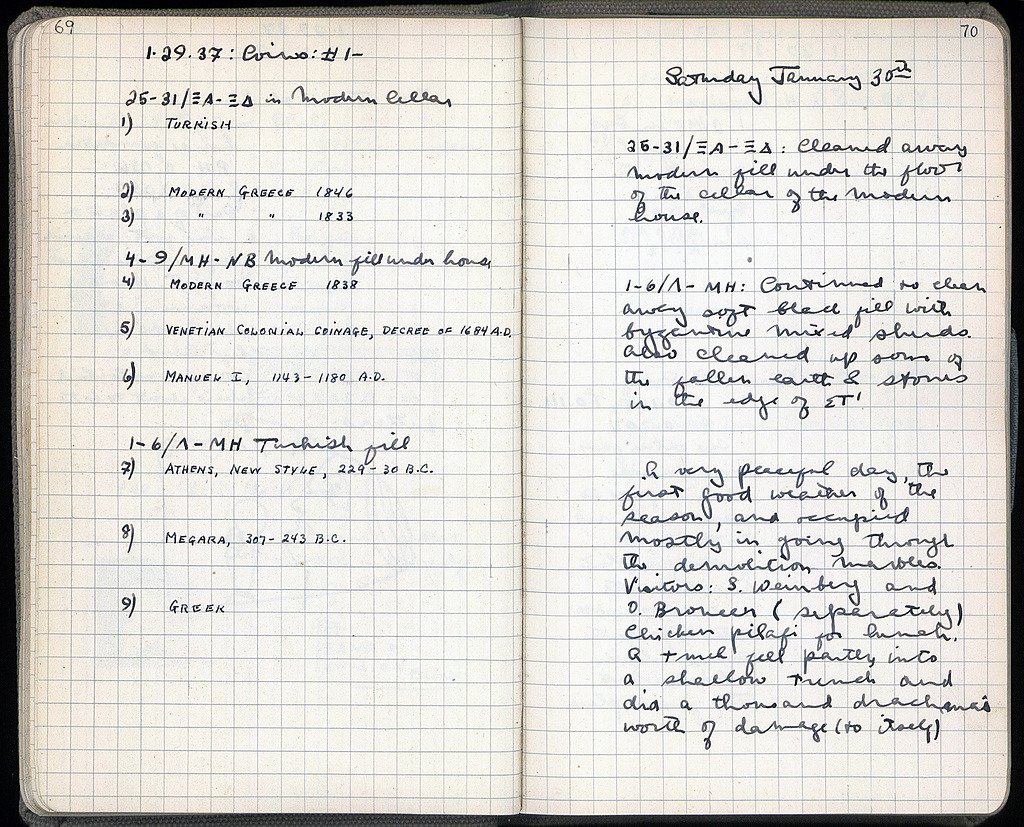 69
1·29·37: Coins: #1-
25-31/ΞΑ-ΞΔ in Modern Cellar
1) TURKISH
2) MODERN GREECE 1846
3) " " 1833
4-9/ΜΗ-ΝΒ Modern fill under house
4) MODERN GREECE 1838
5) VENETIAN COLONIAL COINAGE, DECREE OF 1684 A.D.
6) MANUEL I, 1143-1180 A.D.
1-6/Λ-ΜΗ Turkish fill
7) ATHENS, NEW STYLE, 229-30 B.C.
8) MEGARA, 307-243 B.C.
9) GREEK
70
Saturday January 30th
25-31/ΞΑ-ΞΔ: Cleaned away
modern fill under the floor
of the cellar of the modern
house.
1-6/Λ-ΜΗ: Continued to clean
away soft black fill with
byzantine mixed sherds.
Also cleaned up some of
the fallen earth & stones
in the edge of ΣΤ'
A very peaceful day, the
first good weather of the
season, and occupied
mostly in going through
the demolition marbles.
Visitors: S. Weinberg and
O. Broneer (separately)
Chicken pilafi for lunch.
A fell partly into
a shallow trench and
did a thousand drachmas
worth of damage (to itself)